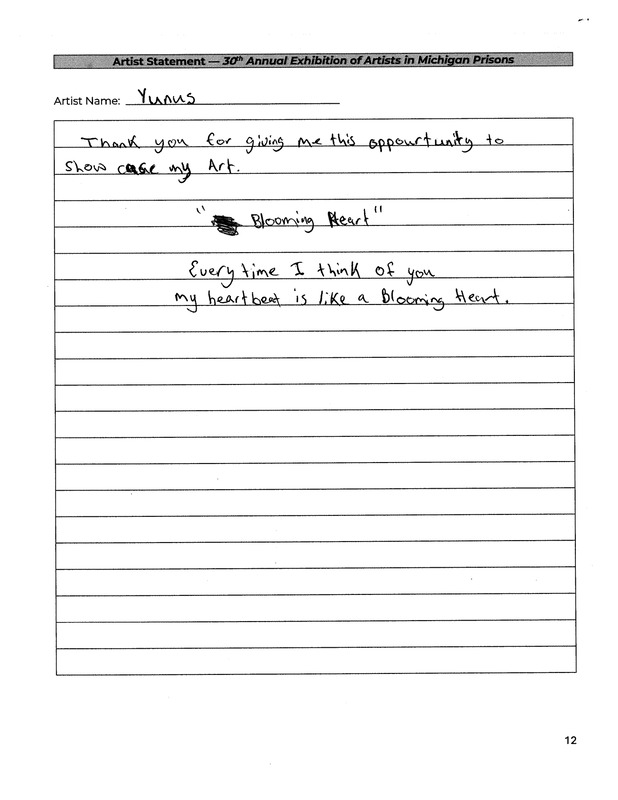 Artist Statement — 30th Annual Exhibition of Artists in Michigan Prisons
Artist Name: Yunus
Thank you for giving me this oppourtunity to
Show case my Art.
" Blooming Heart"
Every time I think of you
my heartbeat is like a Blooming Heart.
12